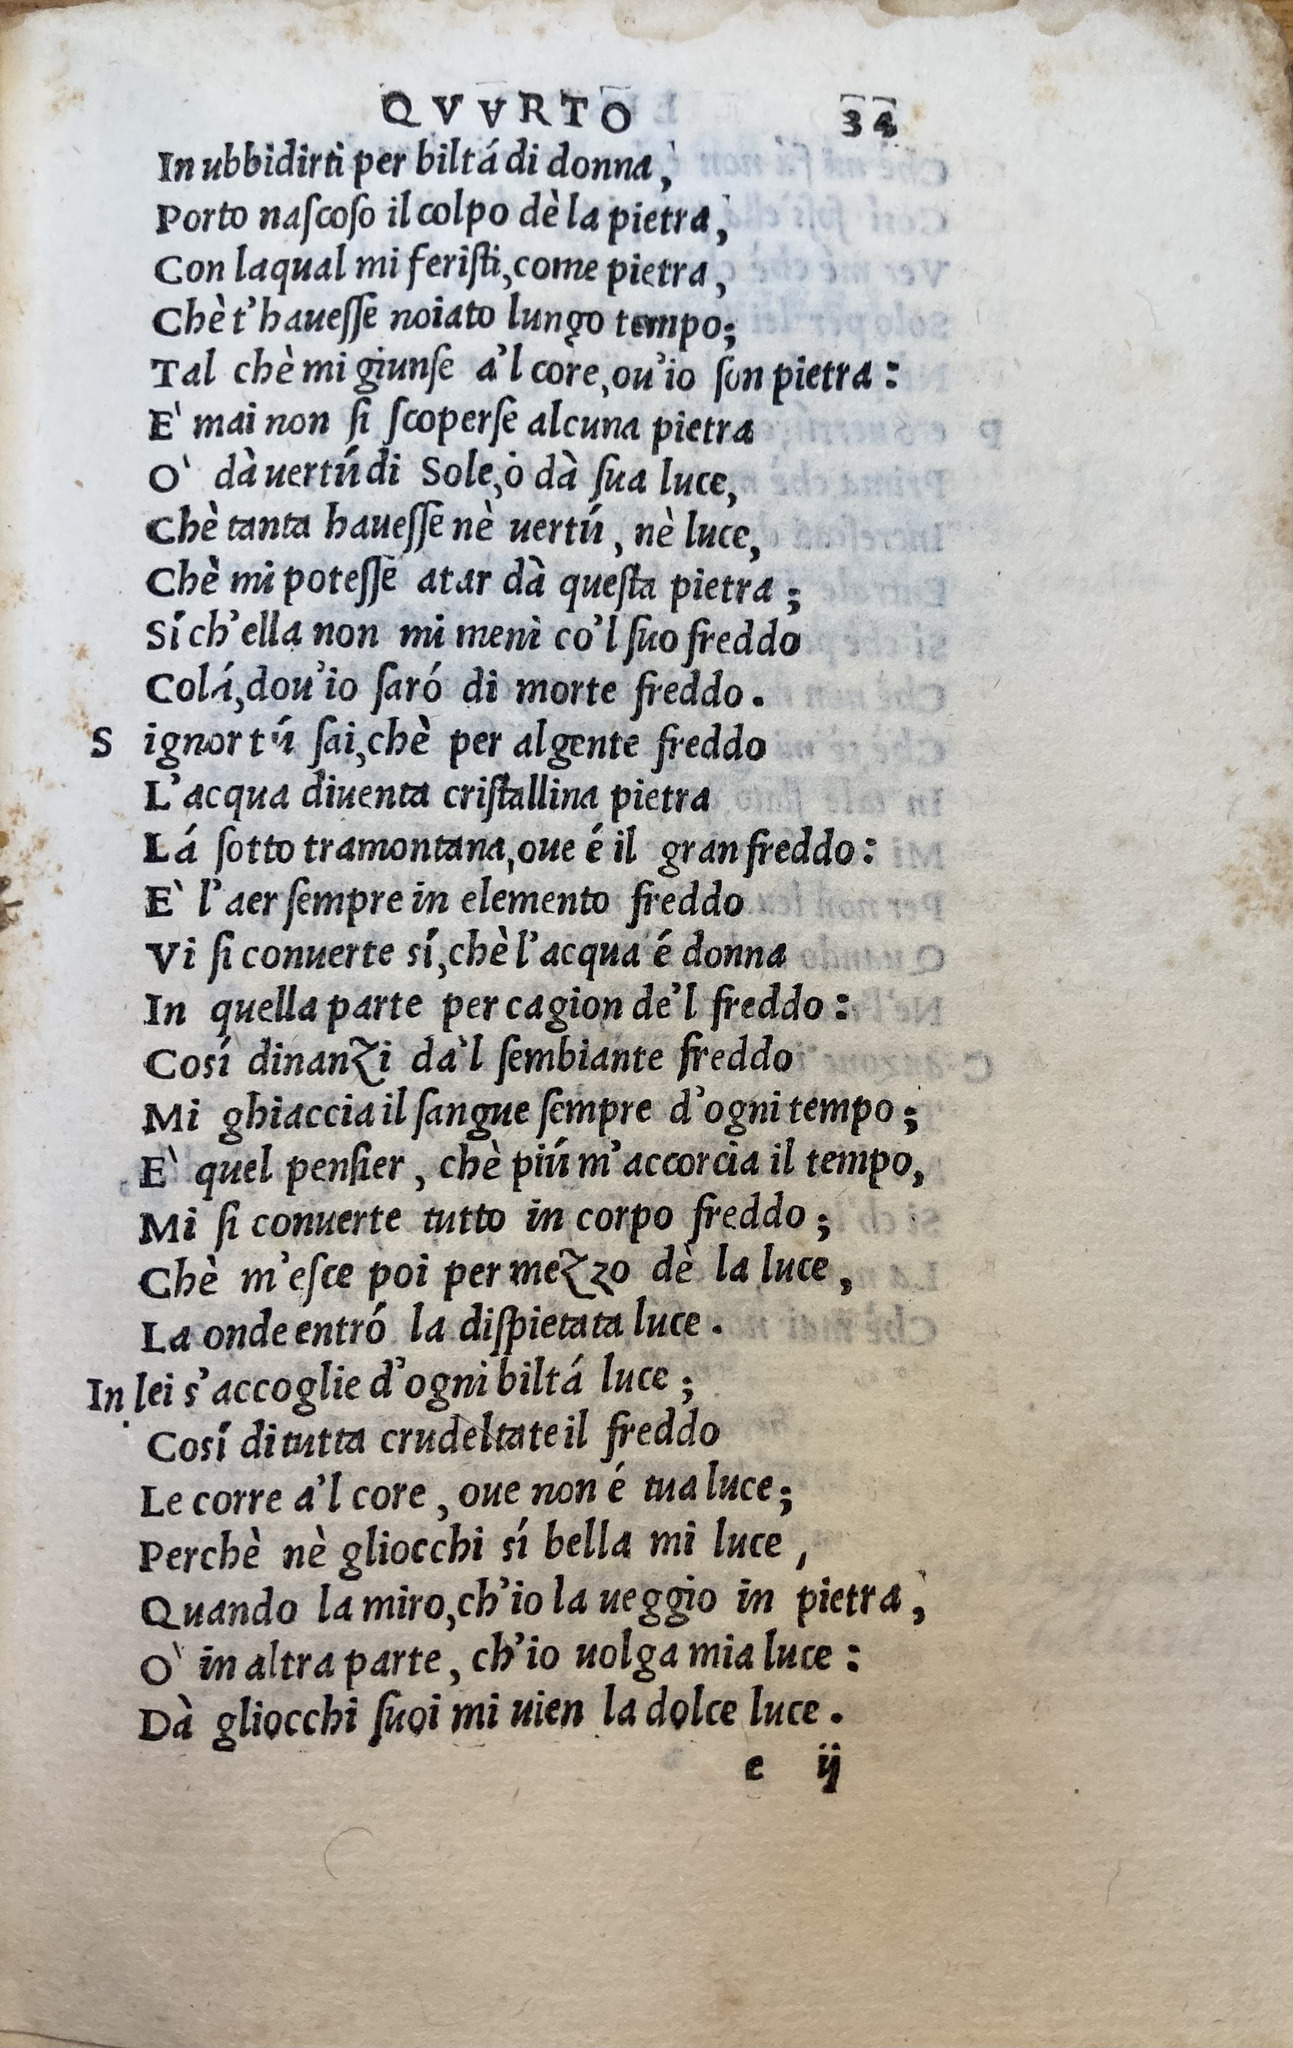 QVVRTO 34
In ubbidirti per biltá di donna,
Porto naſcoſo il colpo dè la pietra,
Con laqual mi feriſti, come pietra,
Chè t'haueſſe noiato lungo tempo;
Tal chè mi giunſe a'l core, ou'io ſon pietra:
E` mai non ſi ſcoperſe alcuna pietra
O` dà uertú di Sole, ò dà ſua luce,
Chè tanta haueſſe nè uertú, nè luce,
Chè mi poteſſe atar dà queſta pietra;
Sí ch'ella non mi meni co'l ſuo freddo
Colá, dou'io ſaró di morte freddo.
S ignor tú ſai, chè per algente freddo
L'acqua diuenta criſtallina pietra
Lá ſotto tramontana, oue é il gran freddo:
E` l'aer ſempre in elemento freddo
Vi ſi conuerte sí, chè l'acqua é donna
In quella parte per cagion de'l freddo:
Cosí dinanzi da'l ſembiante freddo
Mi ghiaccia il ſangue ſempre d'ogni tempo;
E` quel penſier, chè piú m'accorcia il tempo,
Mi ſi conuerte tutto in corpo freddo;
Chè m'eſce poi per mezzo dè la luce,
La onde entró la diſpietata luce.
In lei s'accoglie d'ogni biltá luce;
Cosí di tutta crudeltate il freddo
Le corre a'l core, oue non é tua luce;
Perchè nè gliocchi sí bella mi luce,
Quando la miro, ch'io la ueggio in pietra,
O` in altra parte, ch'io uolga mia luce:
Dà gliocchi ſuoi mi uien la dolce luce.
e ij